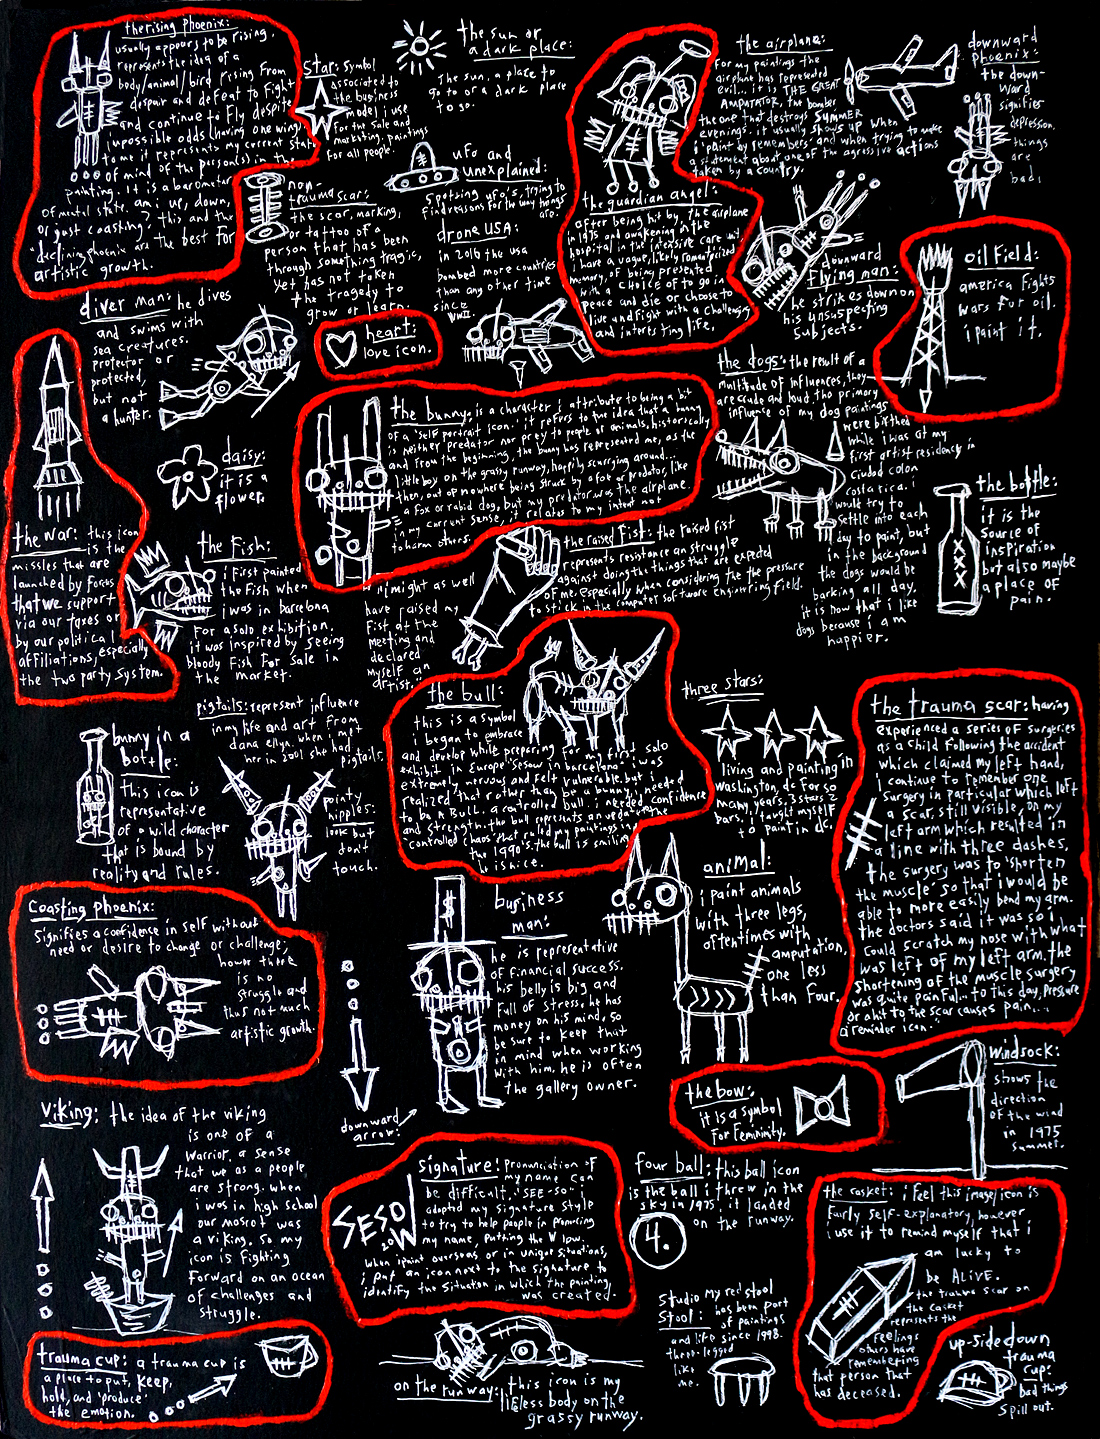 the rising phoenix:
usually appears to be rising.
represents the idea of a
body/animal/bird rising from
despair and defeat to fight
and continue to fly despite
impossible odds (having one wing.
to me it represents my current state
of mind of the person(s) in the
painting. it is a barometer
of mental state. am i up, down,
or just coasting? this and the
declining phoenix are the best for
artistic growth.
star: symbol
associated to
the business
model i use
for the sale and
marketing: paintings
for all people.
the sun or
a dark place:
the sun, a place to
go to or a dark place
to so.
ufo and
unexplained:
spotting ufo's, trying to
find reasons for the way things
are.
non-
trauma scar:
the scar, marking,
or tattoo of a
person that has been
through something tragic,
yet has not taken
the tragedy to
grow or learn.
drone usa:
in 2016 the usa
bombed more countries
than any other time
since
WWII.
the guardian angel:
after being hit by the airplane
in 1975 and awakening in the
hospital in the intensive care unit,
i have a vague, likely romanticized
memory, of being presented
with a choice of to go in
peace and die or choose to
live and fight with a challenging
and interesting life.
the airplane:
for my paintings the
airplane has represented
evil... it is THE GREAT
AMPUTATOR, the bomber
the one that destroys SUMMER
evenings. it usually shows up when
i 'paint by remembers' and when trying to make
a statement about one of the agressive actions
taken by a country.
downward
phoenix:
the down-
ward
signifies
depression,
things
are
bad.
downward
flying man:
he strikes down on
his unsuspecting
subjects.
oil field:
america fights
wars for oil.
i paint it.
diver man: he dives
and swims with
sea creatures.
protector or
protected,
but not
a hunter.
heart:
love icon.
the bunny: is a character i attribute to being a bit
of a 'self portrait icon.' it refers to the idea that a bunny
is neither predator nor prey to people or animals, historically
and from the beginning, the bunny has represented me, as the
little boy on the grassy runway, happily scurrying around...
then, out of nowhere being struck by a foe or predator, like
a fox or rabid dog, but my predator was the airplane.
in my current sense, it relates to my intent not
to harm others.
the dogs: the result of a
multitude of influences, they
are crude and loud. the primary
influence of my dog paintings
were birthed
while i was at my
first artist residency in
ciudad colon
costa rica. i
would try to
settle into each
day to paint, but
in the background
the dogs would be
barking all day.
it is now that i like
dogs because i am
happier.
the bottle:
it is the
source of
inspiration
but also maybe
a place of
pain.
daisy:
it is a
flower.
the war: this icon
is the
missles that are
launched by forces
that we support
via our taxes or
by our political
affiliations, especially
the two party system.
the fish:
i first painted
the fish when
i was in barcelona
for a solo exhibition.
it was inspired by seeing
bloody fish for sale in
the market.
the raised fist: the raised fist
represents resistance and struggle
against doing the things that are expected
of me, especially when considering the the pressure
to stick in the computer software engineering field.
i might as well
have raised my
fist at the
meeting and
declared
myself an
artist.
the bull:
this is a symbol
i began to embrace
and develop while preparing for my first solo
exhibit in Europe 'sesow in barcelona'. i was
extremely nervous and felt vulnerable. but i
realized that rather than be a bunny, i needed
to be a Bull. a controlled bull. i needed confidence
and strength. the bull represents an update to
'controlled chaos' that ruled my paintings in
the 1990's. the bull is smiling
he is nice.
three stars:
living and painting in
washington, dc for so
many years. 3 stars 2
bars. i taught myself
to paint in dc.
the trauma scar: having
experienced a series of surgeries
as a child following the accident
which claimed my left hand,
i continue to remember one
surgery in particular which left
a scar, still visible, on my
left arm which resulted in
a line with three dashes.
the surgery was to 'shorten
the muscle' so that i would be
able to more easily bend my arm.
the doctors said it was so i
could scratch my nose with what
was left of my left arm. the
shortening of the muscle surgery
was quite painful... to this day, pressure
or a hit to the scar causes pain...
a reminder icon.
pigtails: represent influence
in my life and art from
dana ellyn. when i met
her in 2001 she had
pigtails.
bunny in a
bottle:
this icon is
representative
of a wild character
that is bound by
reality and rules.
pointy
nipples:
look but
don't
touch.
Coasting phoenix:
signifies a confidence in self without
need or desire to change or challenge;
however there
is no
struggle and
thus not much
artistic growth.
$
business
man:
he is representative
of financial success.
his belly is big and
full of stress. he has
money on his mind, so
be sure to keep that
in mind when working
with him. he is often
the gallery owner.
downward
arrow:
animal:
i paint animals
with three legs,
oftentimes with
amputation.
one less
than four.
the bow:
it is a symbol
for femininity.
windsock:
shows the
direction
of the wind
in 1975
summer.
viking: the idea of the viking
is one of a
warrior, a sense
that we as a people
are strong. when
i was in high school
our mascot was
a viking. so my
icon is fighting
forward on an ocean
of challenges and
struggle.
SESOW
20
signature: pronunciation of
my name can
be difficult. 'SEE-SO'. i
adapted my signature style
to try to help people in pronouncing
my name, putting the W low.
when i paint overseas, or in unique situations,
i put an icon next to the signature to
identify the situation in which the painting
was created.
four ball: this ball icon
is the ball i threw in the
sky in 1975. it landed
on the runway.
4.
the casket: i feel this image/icon is
fairly self-explanatory, however
i use it to remind myself that i
am lucky to
be ALIVE.
the trauma scar on
the casket
represents the
feelings
others have
remembering
that person that
has deceased.
trauma cup: a trauma cup is
a place to put, keep,
hold, and 'produce'
the emotion.
on the runway: this icon is my
lifeless body on the
grassy runway.
studio
stool:
my red stool
has been part
of paintings
and life since 1998.
three-legged
like
me.
up-side down
trauma
cup:
bad things
spill out.